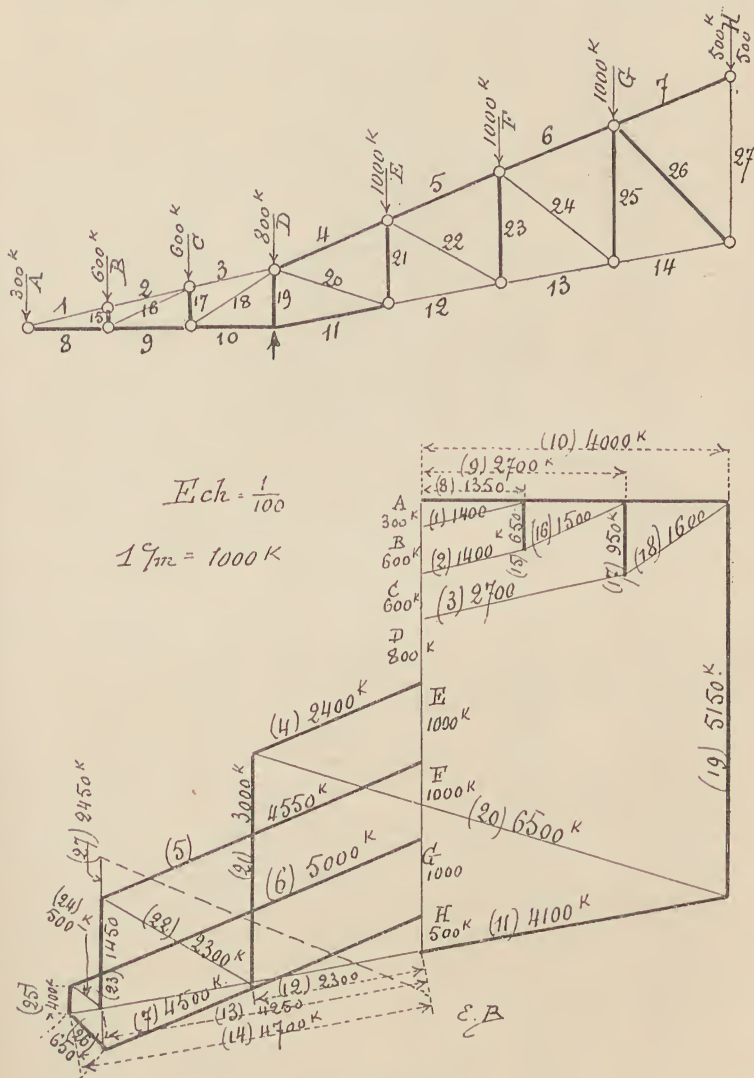 300 K
A
600 K
B
600 K
C
800 K
D
1000 K
E
1000 K
F
1000 K
G
500 K
H
500
1
2
3
4
5
6
7
8
9
10
11
12
13
14
15
16
17
18
19
20
21
22
23
24
25
26
27
Ech = 1/100
1 c/m = 1000 K
(10) 4000 K
(9) 2700 K
(8) 1350
A
300 K
B
600 K
C
600 K
D
800 K
E
1000 K
F
1000 K
G
1000
H
500 K
(1) 1400
(2) 1400 K
(3) 2700
(15) 650
(16) 1500
(17) 950 K
(18) 1600
(19) 5150 K
(4) 2400 K
(20) 6500 K
(21) 3000 K
(5) 4550 K
(6) 5000 K
(11) 4100 K
(27) 2450 K
(24)
500 K
(23) 1450
(22) 2300 K
(25)
400 K
(26)
650 K
(7) 4500 K
(12) 2300
(13) 4250
(14) 4700 K
E.B